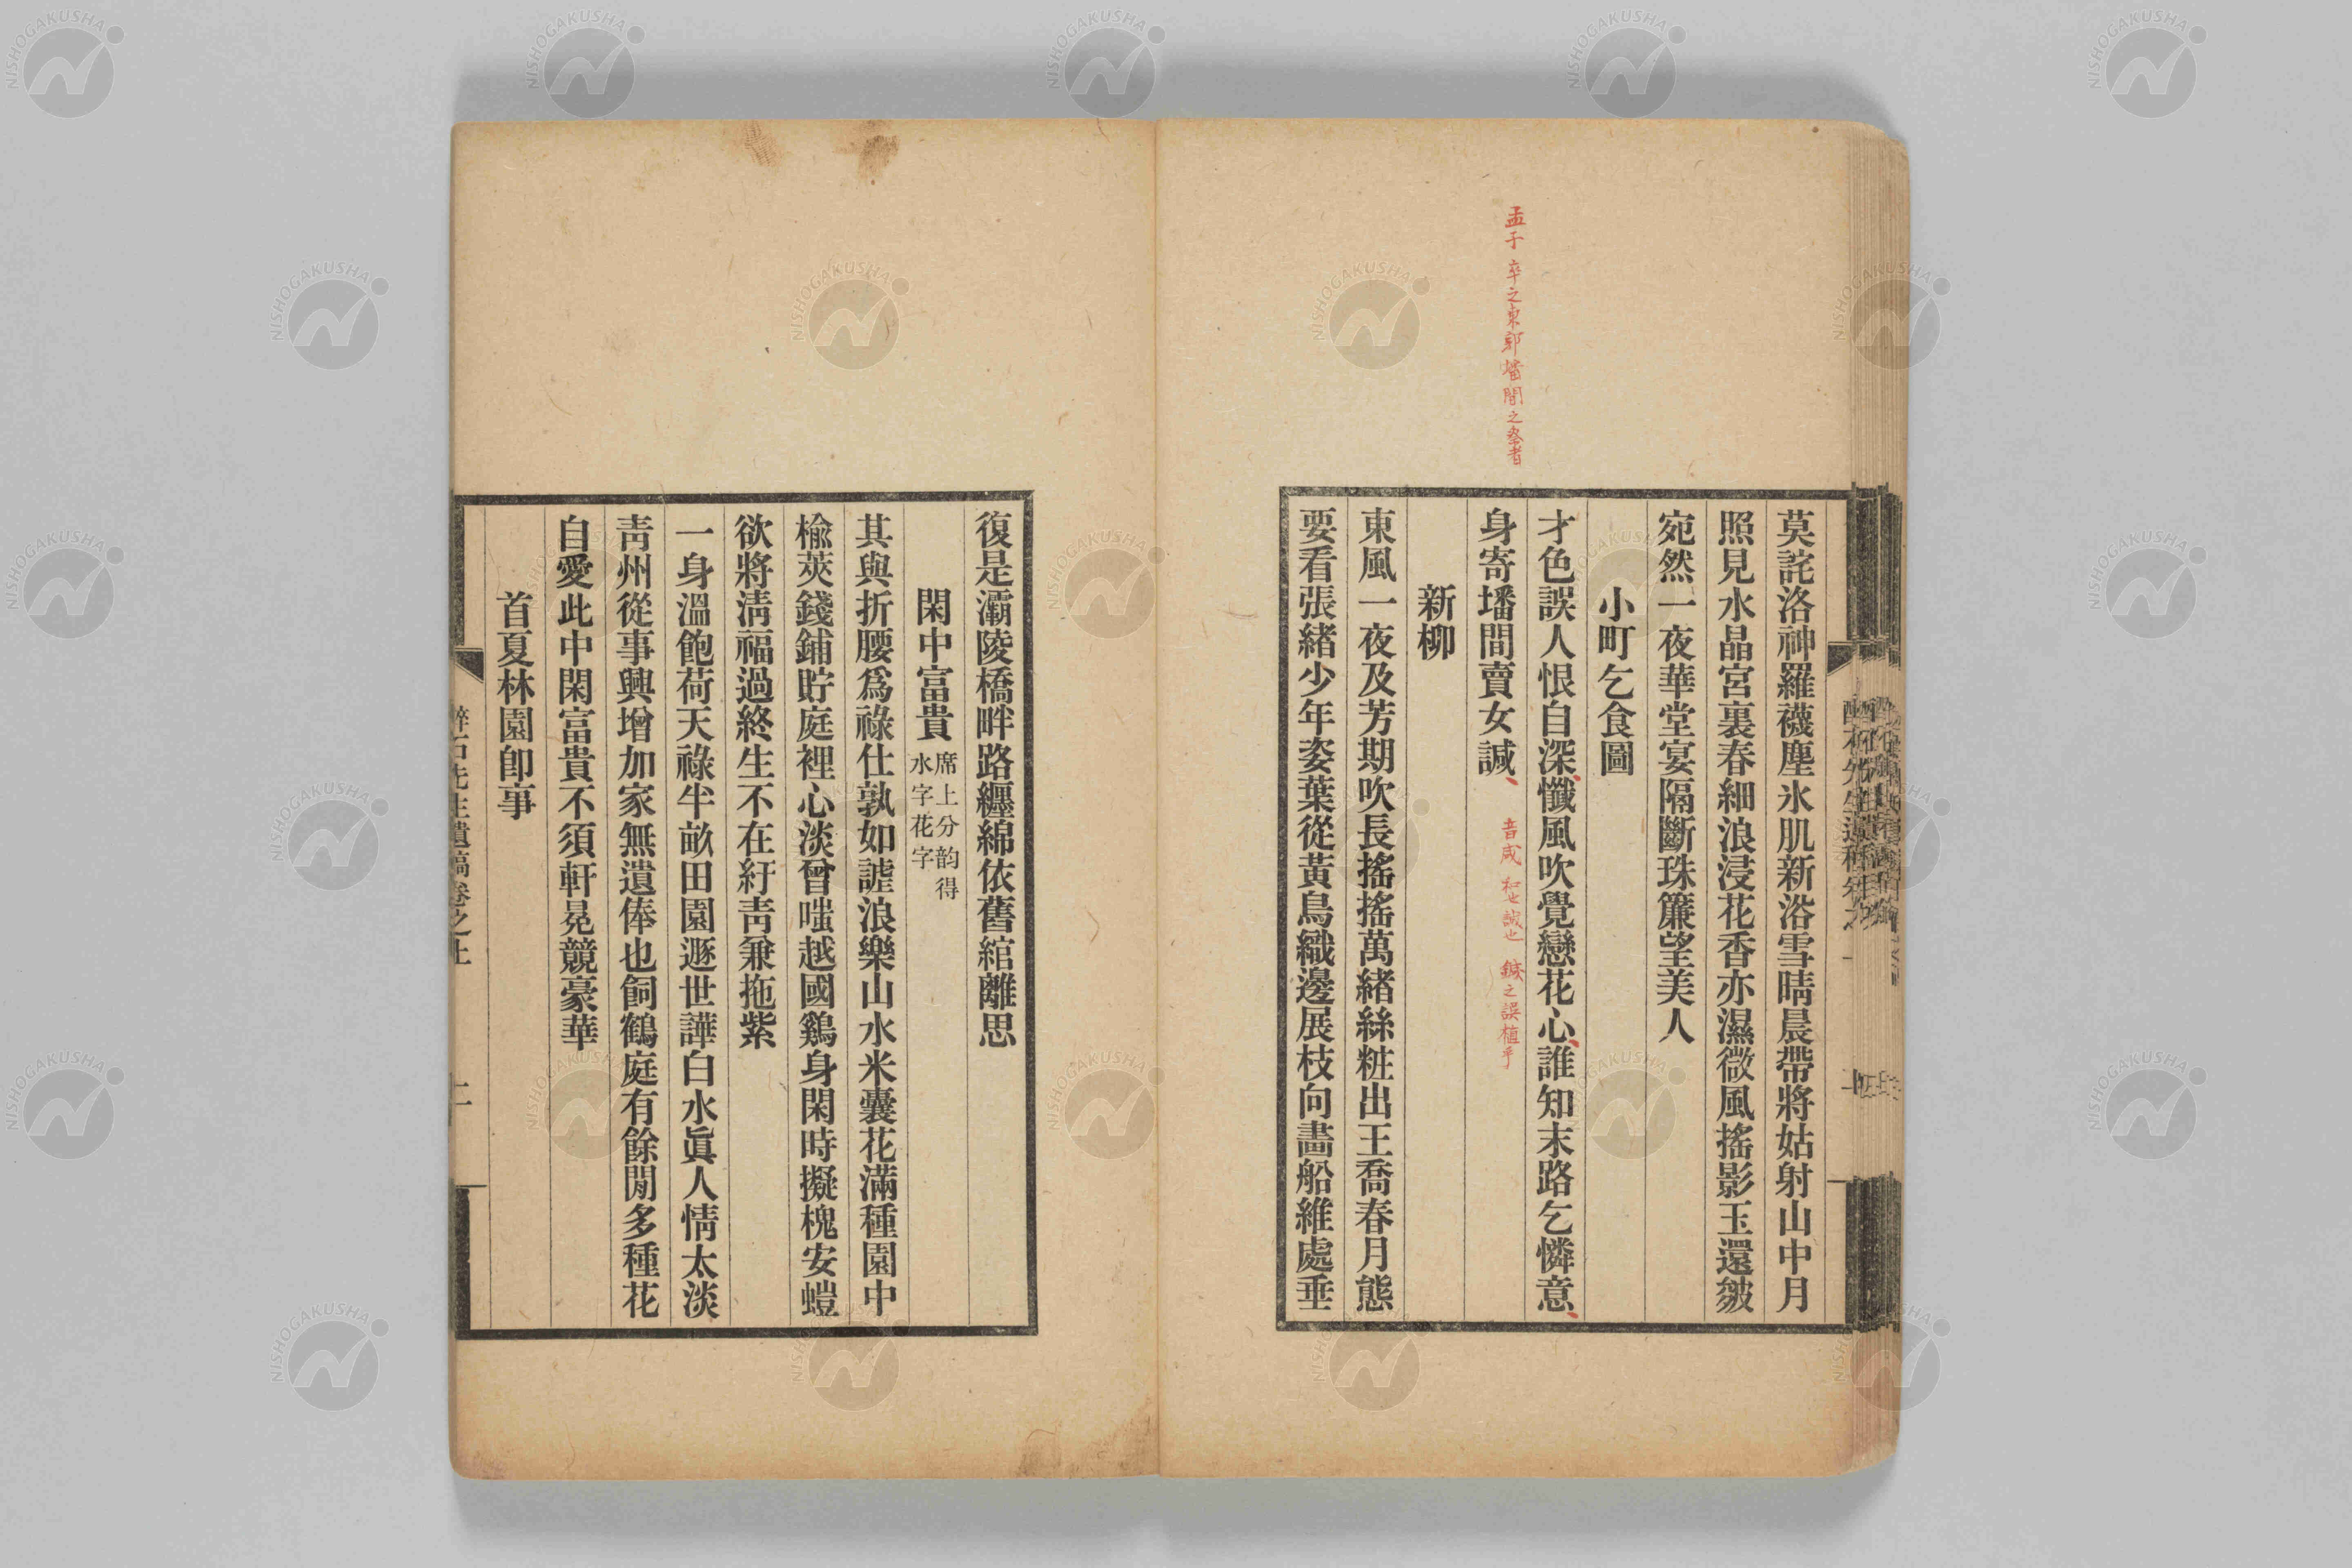 孟子 卒之東郭墦間之祭者
莫詫洛神羅襪塵氷肌新浴雪晴晨帶將姑射山中月
照見水晶宮裏春細浪浸花香亦濕微風搖影玉還皴
宛然一夜華堂宴隔斷珠簾望美人
小町乞食圖
才色誤人恨自深、懺風吹覺戀花心、誰知末路乞憐意、
身寄墦間賣女諴、
音咸 和也誠也 鍼之誤植乎
新柳
東風一夜及芳期吹長搖搖萬緒絲粧出王喬春月態
要看張緒少年姿葉從黃鳥織邊展枝向畵船維處垂
復是灞陵橋畔路纒綿依舊綰離思
閑中富貴 席上分韵得
水字花字
其與折腰爲祿仕孰如謔浪樂山水米囊花滿種園中
楡莢錢鋪貯庭裡心淡曾嗤越國鷄身閑時擬槐安螘
欲將淸福過終生不在紆靑兼拖紫
一身溫飽荷天祿半畝田園遯世譁白水眞人情太淡
靑州從事興增加家無遺俸也飼鶴庭有餘閒多種花
自愛此中閑富貴不須軒冕競豪華
首夏林園卽事
醉石先生遺稿卷之上
NISHOGAKUSHA